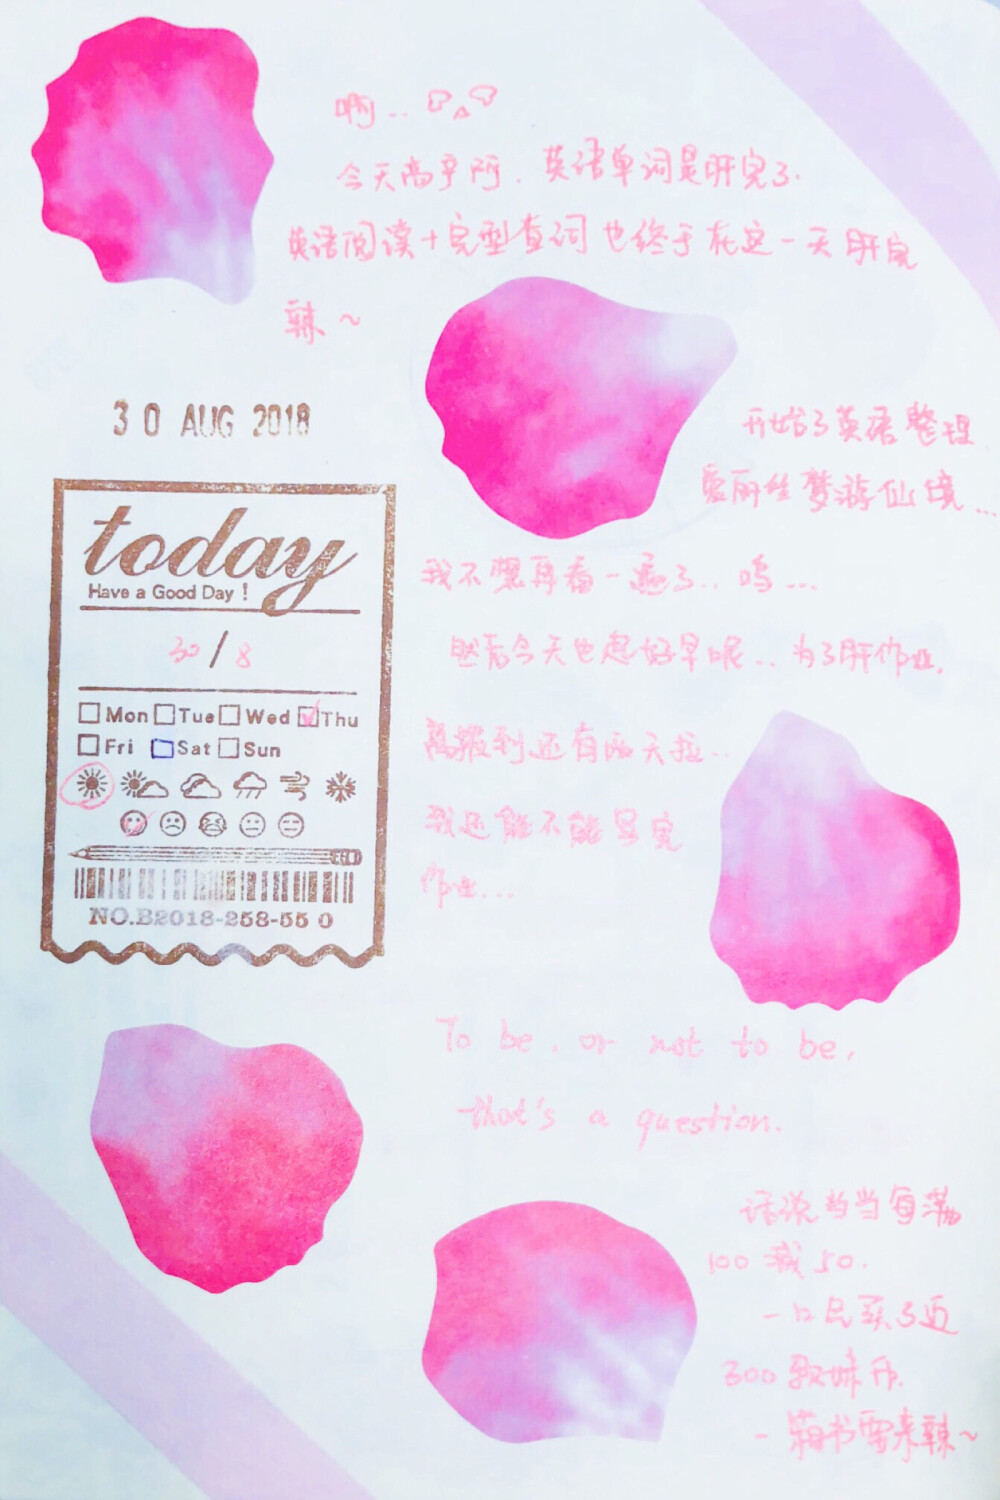 啊...
今天高产所.英语单词是肝完了.
英语阅读+完型查词也终于在这一天肝完
辣~
30 AUG 2018
today
Have a Good Day!
30/8
Mon Tue Wed Thu
Fri Sat Sun
NO.B2018-258-55 0
开始了英语整理
爱丽丝梦游仙境...
我不想再看一遍了..呜...
然后今天也起好早呢..为了肝作业.
离报到还有两天拉..
我还能不能写完
作业...
To be, or not to be,
that's a question.
话说当当每满
100减50.
一口气买了近
300软妹币.
一箱书要来辣~